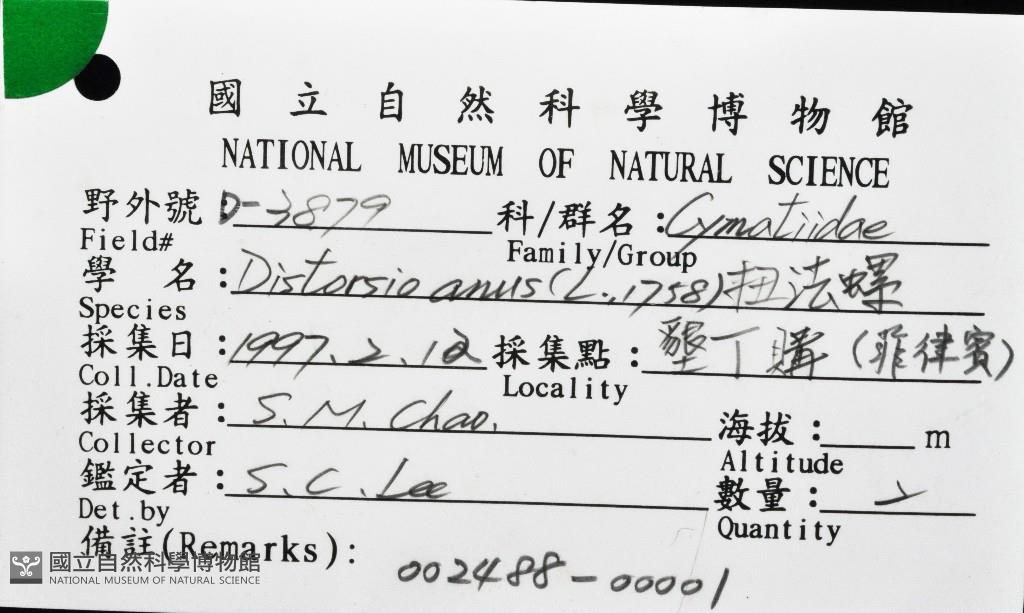 國立自然科學博物館
NATIONAL MUSEUM OF NATURAL SCIENCE
野外號:D-3879 科/群名:Cymatiidae
Field# Family/Group
學 名:Distorsio anus (L., 1758) 扭法螺
Species
採集日:1997.2.12 採集點:墾丁購(菲律賓)
Coll.Date Locality
採集者:S. M. Chao.
Collector
海拔: m
Altitude
鑑定者:S. C. Lee
Det.by
數量:
Quantity
備註(Remarks):
002488-00001
國立自然科學博物館
NATIONAL MUSEUM OF NATURAL SCIENCE